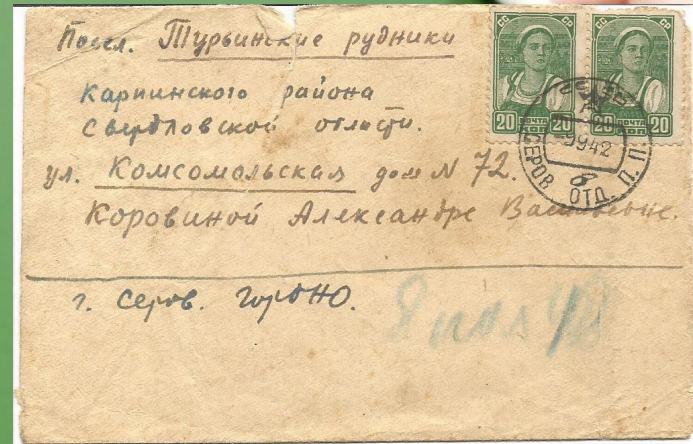 Посел. Турьинские рудники
Карпинского района
Свердловской области.
ул. Комсомольская дом N 72.
Коровиной Александре Васильевне.
г. Серов. ГорОНО.
СС СР
СС СР
20 ПОЧТА 20
20 ПОЧТА 20
9942
СЕРОВ ОТД. П.П.